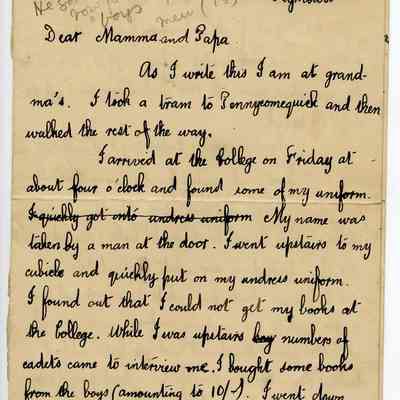 boys men (
Dear Mamma and Papa.
As I write this I am at grand-
ma's. I took a tram to Pennycomequick and then
walked the rest of the way.
I arrived at the College on Friday at
about four o'clock and found some of my uniform.
I quickly got onto undress uniform My name was
taken by a man at the door. I went upstairs to my
cubicle and quickly put on my undress uniform.
I found out that I could not get my books at
the College. While I was upstairs boy numbers of
cadets came to interview me. I bought some books
from the boys (amounting to 10/-). I went down